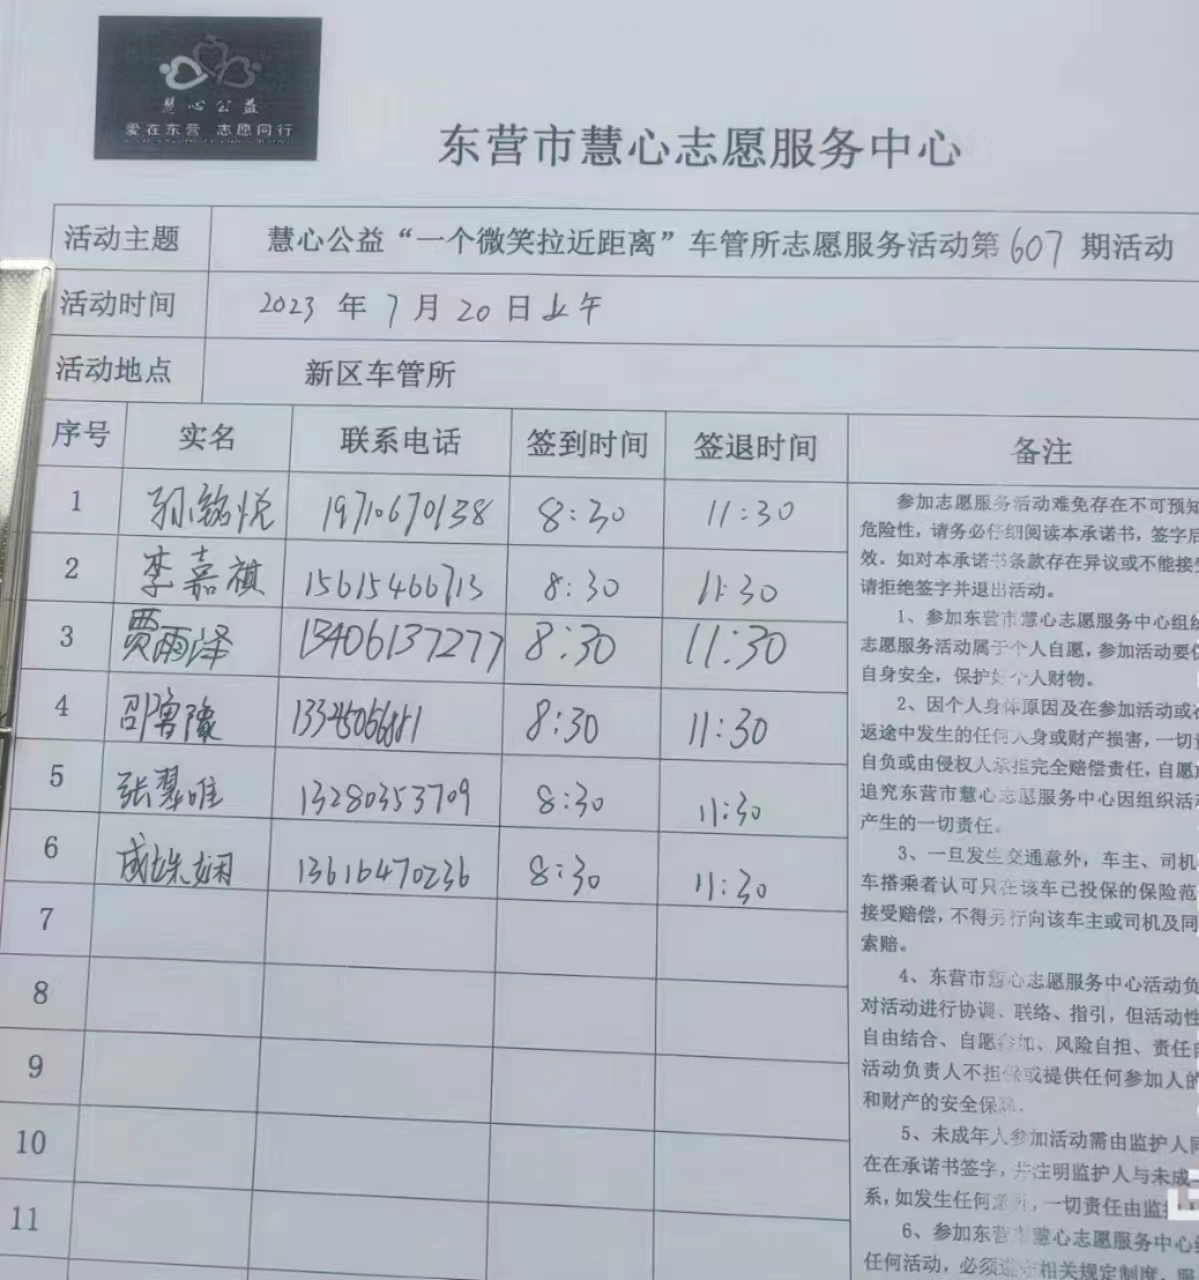 慧心公益
爱在东营 志愿同行
东营市慧心志愿服务中心
活动主题 慧心公益“一个微笑拉近距离”车管所志愿服务活动第607期活动
活动时间 2023年7月20日上午
活动地点 新区车管所
序号 实名 联系电话 签到时间 签退时间 备注
1 孙铭悦 19710670138 8:30 11:30
2 李嘉祺 15615466713 8:30 11:30
3 贾雨泽 13406137277 8:30 11:30
4 邵鲁豫 8:30 11:30
5 张翠唯 13280353709 8:30 11:30
6 成姝娴 13616470236 8:30 11:30
7
8
9
10
11
参加志愿服务活动难免存在不可预知
危险性，请务必仔细阅读本承诺书，签字后
效。如对本承诺书条款存在异议或不能接受
请拒绝签字并退出活动。
1、参加东营市慧心志愿服务中心组织
志愿服务活动属于个人自愿，参加活动要
自身安全，保护好个人财物。
2、因个人身体原因及在参加活动或在
返途中发生的任何人身或财产损害，一切责
自负或由侵权人承担完全赔偿责任，自愿放
追究东营市慧心志愿服务中心因组织活动
产生的一切责任。
3、一旦发生交通意外，车主、司机
车搭乘者认可只在该车已投保的保险范
接受赔偿，不得另行向该车主或司机及同
索赔。
4、东营市慧心志愿服务中心活动负
对活动进行协调、联络、指引，但活动性
自由结合、自愿参加、风险自担、责任自
活动负责人不担保或提供任何参加人的
和财产的安全保障.
5、未成年人参加活动需由监护人同
在在承诺书签字，并注明监护人与未成
系，如发生任何意外，一切责任由监
6、参加东营市慧心志愿服务中心组
任何活动，必须遵守相关规定制度，服